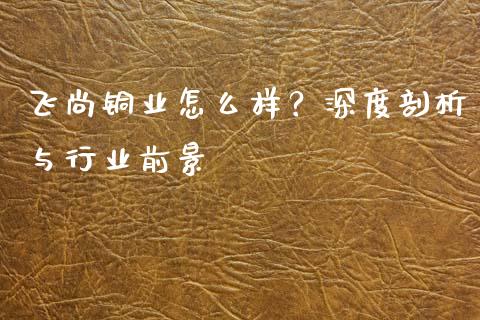 飞尚铜业怎么样？深度剖析
与行业前景